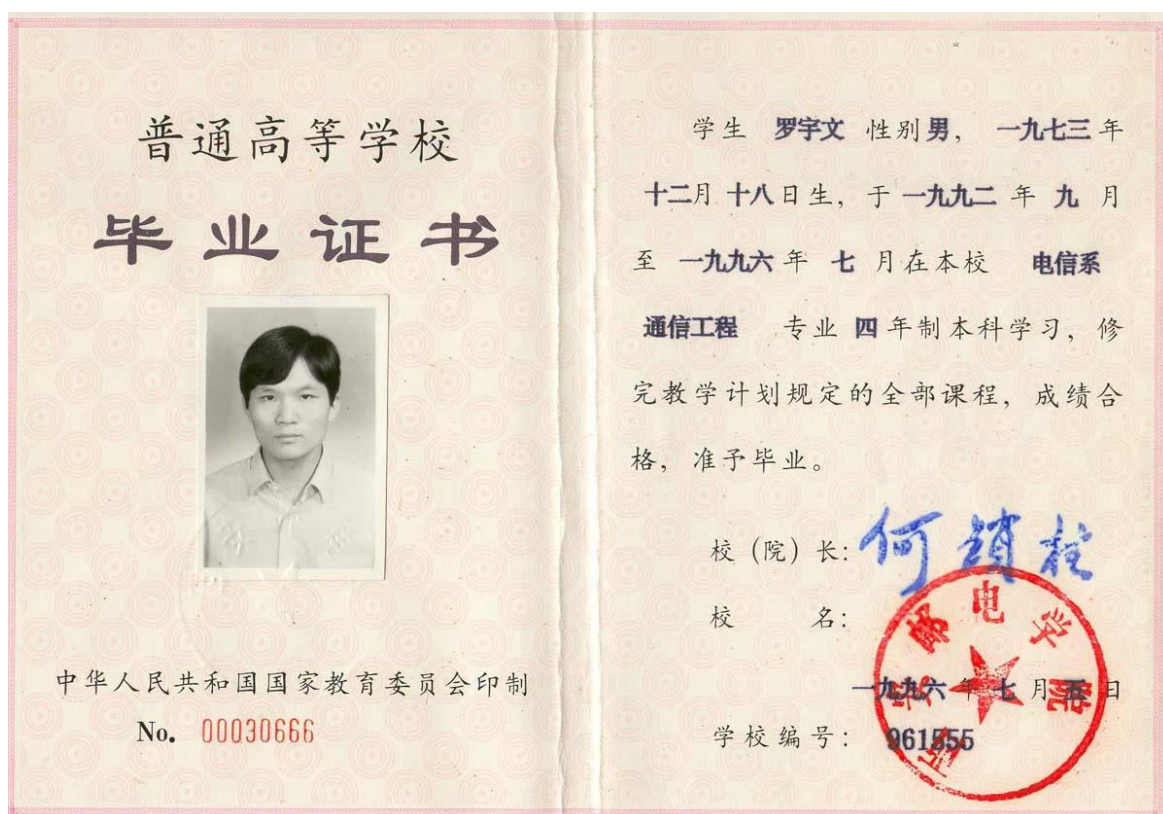 普通高等学校
毕业证书
中华人民共和国国家教育委员会印制
No. 00030666
学生 罗宇文 性别男， 一九七三年
十二月十八日生，于一九九二年九月
至一九九六年七月在本校 电信系
通信工程 专业四年制本科学习，修
完教学计划规定的全部课程，成绩合
格，准予毕业。
校（院）长：何锁柱
校 名：
西安邮电学院
一九九六年七月五日
学校编号：961555